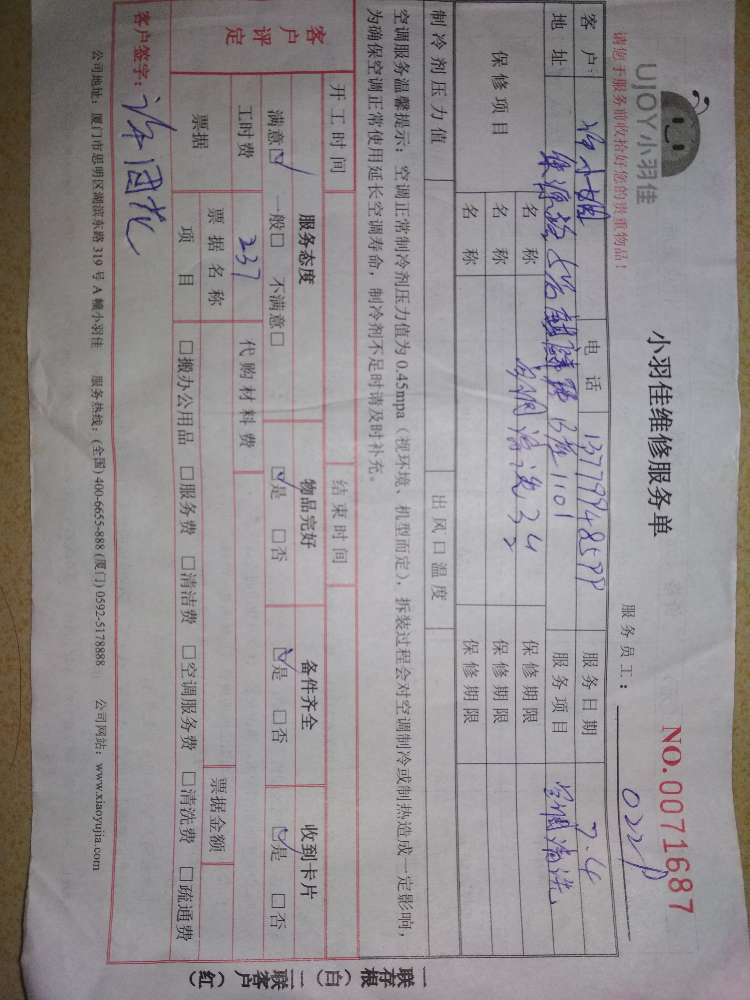 UJOY小羽佳
小羽佳维修服务单
NO.0071687
请您于服务前收拾好您的贵重物品！
服务员工：
客户： 小姐 电话 服务日期 7.4
地址 服务项目 空调清洗
保修项目 名称 空调清洗 保修期限
名称 保修期限
名称 保修期限
制冷剂压力值 出风口温度
空调服务温馨提示：空调正常制冷剂压力值为0.45mpa（视环境、机型而定），拆装过程会对空调制冷或制热造成一定影响，
为确保空调正常使用延长空调寿命，制冷剂不足时请及时补充。
开工时间 结束时间
客户评定 服务态度 物品完好 备件齐全 收到卡片
满意☑ 一般□ 不满意□ ☑是 □否 ☑是 □否 ☑是 □否
工时费 237 代购材料费
票据 票据名称 票据金额
项目 □搬办公用品 □服务费 □清洁费 □空调服务费 □清洗费 □疏通费
客户签字：
公司地址：厦门市思明区湖滨东路319号A幢小羽佳 服务热线：(全国) 400-6655-888 (厦门) 0592-5178888 公司网站：www.xiaoyujia.com
一联存根（白） 二联客户（红）